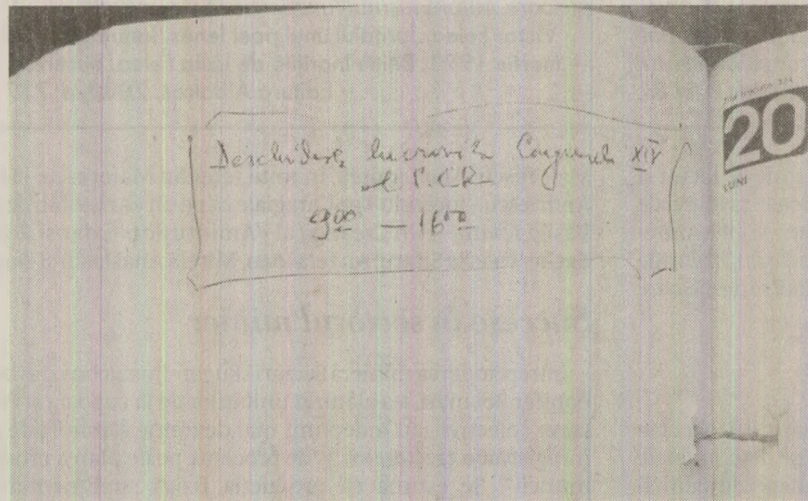 Deschiderea lucrărilor Congresului XIV
al P.C.R
9 00 — 16 00
20
LUNI